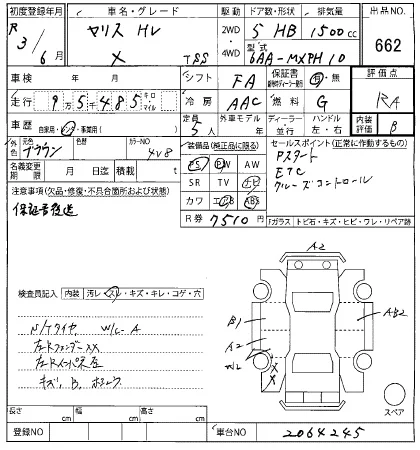 初度登録年月 車名・グレード 駆動 ドア数・形状 排気量 出品NO.
R 3/6月 ヤリス HV X TSS 2WD・4WD 5 HB 1500cc 662
型式 6AA-MXPH10
車検 年 月 シフト FA 保証書 有・無 評価点
走行 9万5千485 キロ マイル 冷房 AAC 燃料 G RA
車歴 自家用・レンタ・事業用( ) 定員 5人 外車モデル 年 ディーラー・並行 ハンドル 左・右 内装評価 B
外色 元色 ブラウン 色替 カラーNO 4V8 装備品(純正品に限る) セールスポイント(正常に作動するもの)
名義変更期限 月 日迄 積載 t PS PW AW Pスタート
注意事項(欠品・修復・不具合箇所および状態) SR TV ナビ ETC
保証書後送 カワ エアB ABS クルーズコントロール
R券 7510円 「ガラス トビ石・キズ・ヒビ・ワレ・リペア跡
A2
検査員記入 内装 汚レ・スレ・キズ・キレ・コゲ・穴
B1 AB2
N/Tタイヤ W/L-A A2
左Rフェンダー XX W2
左Rインパネ XX
キズ、B、ホシュウ
スペア
長さ cm 幅 cm 高さ cm
登録NO 車台NO 2064245